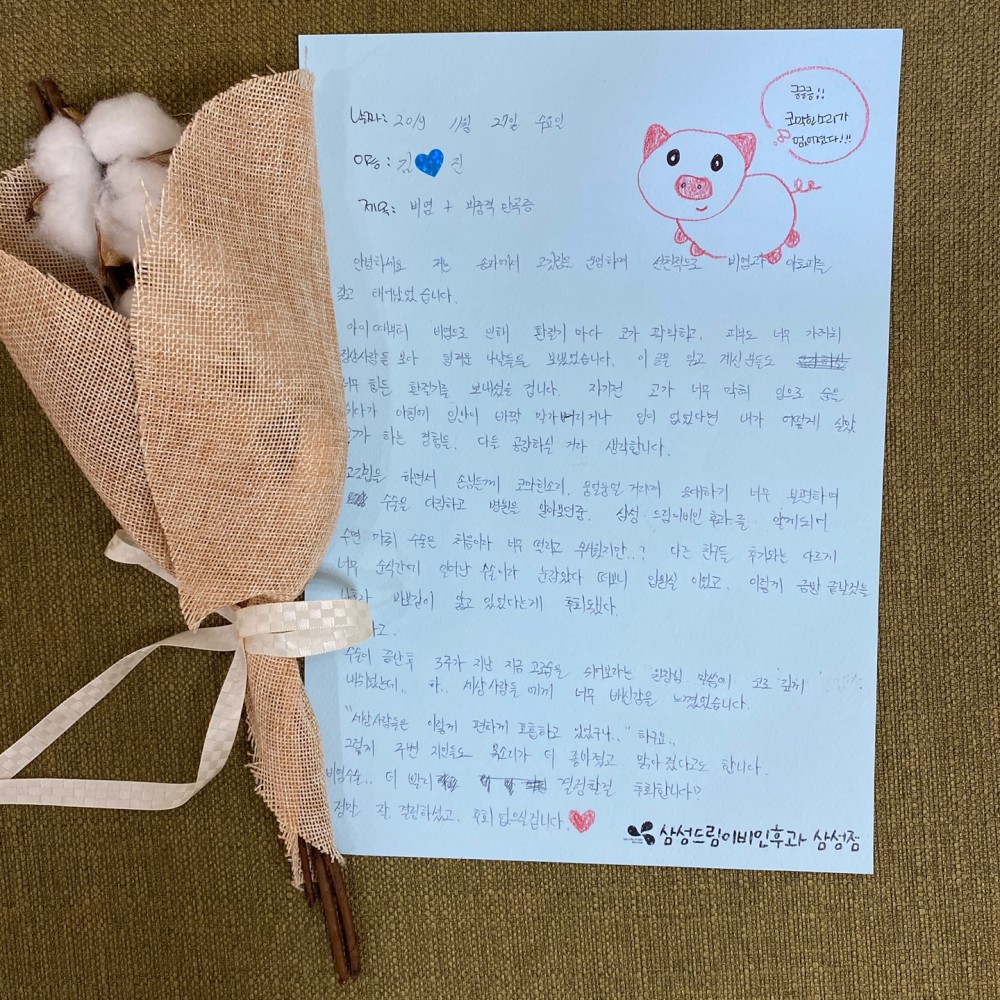 날짜: 2019 11월 27일 수요일
이름: 김 진
제목: 비염 + 비중격 만곡증
킁킁킁!!
코막힌소리가
없어졌다!!!
안녕하세요 저는 송파에서 고깃집을 운영하며 선천적으로 비염과 아토피를
갖고 태어났었습니다.
아이때부터 비염으로 인해 환절기 마다 코가 꽉막히고, 피부도 너무 가려워
정상사람들 보다 힘겨운 나날들을 보냈었습니다. 이 글을 읽고 계신 분들도
너무 힘든 환절기를 보내셨을 겁니다. 자기전 코가 너무 막혀 입으로 숨을
쉬다가 아침에 입안이 바짝 말라버리거나 입이 없었다면 내가 어떻게 살았
을까 하는 경험들. 다들 공감하실 거라 생각합니다.
고깃집을 하면서 손님들께 코막힌소리, 웅얼웅얼 거리며 응대하기 너무 불편하여
수술을 다짐하고 병원을 알아보던중. 삼성 드림이비인후과를 알게되어
수면 마취 수술은 처음이라 너무 떨리고 무서웠지만..? 다른 친구들 후기와는 다르게
너무 순식간에 일어난 수술이라 눈감았다 떠보니 입원실 이었고. 이렇게 금방 끝날것을
바보같이 앓고 있었다는게 후회됐다.
수술이 끝난후 3주가 지난 지금 코로숨을 쉬어보라는 원장님 말씀에 코로 깊게
내쉬었는데.. 하.. 세상사람들에게 너무 배신감을 느꼈었습니다.
"세상사람들은 이렇게 편하게 호흡하고 있었구나.." 하구요..
그렇지 주변 지인들도 목소리가 더 좋아졌고 맑아 졌다고도 합니다.
비염수술.. 더 빨리 결정할걸 후회합니다?
정말 잘 결정하셨고. 후회 없으실겁니다.
삼성드림이비인후과 삼성점